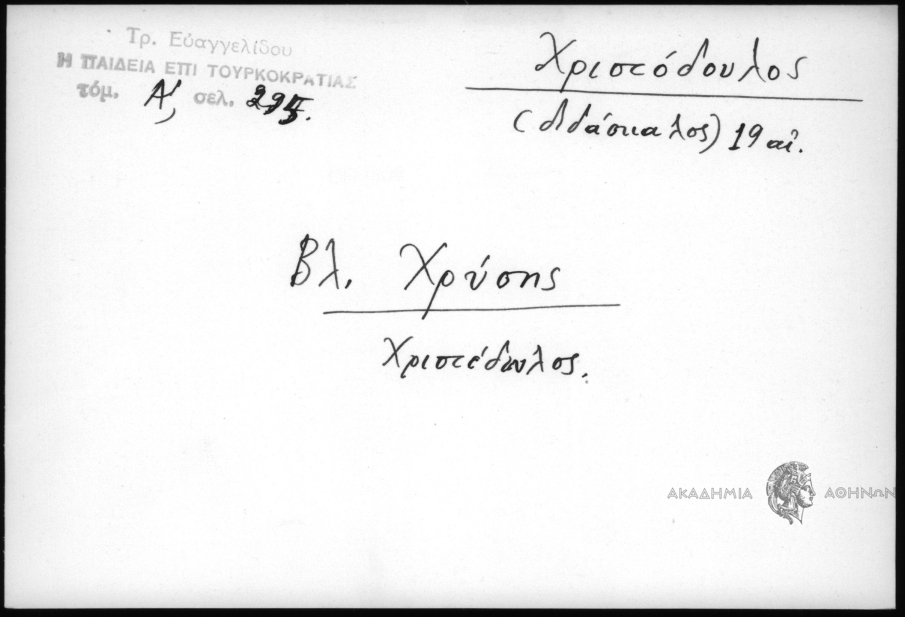 Τρ. Εὐαγγελίδου
Η ΠΑΙΔΕΙΑ ΕΠΙ ΤΟΥΡΚΟΚΡΑΤΙΑΣ
τόμ. Α', σελ.
Χριστόδουλος
(διδάσκαλος) 19 αἰ.
Βλ. Χρύσης
Χριστόδουλος.
ΑΚΑΔΗΜΙΑ ΑΘΗΝΩΝ